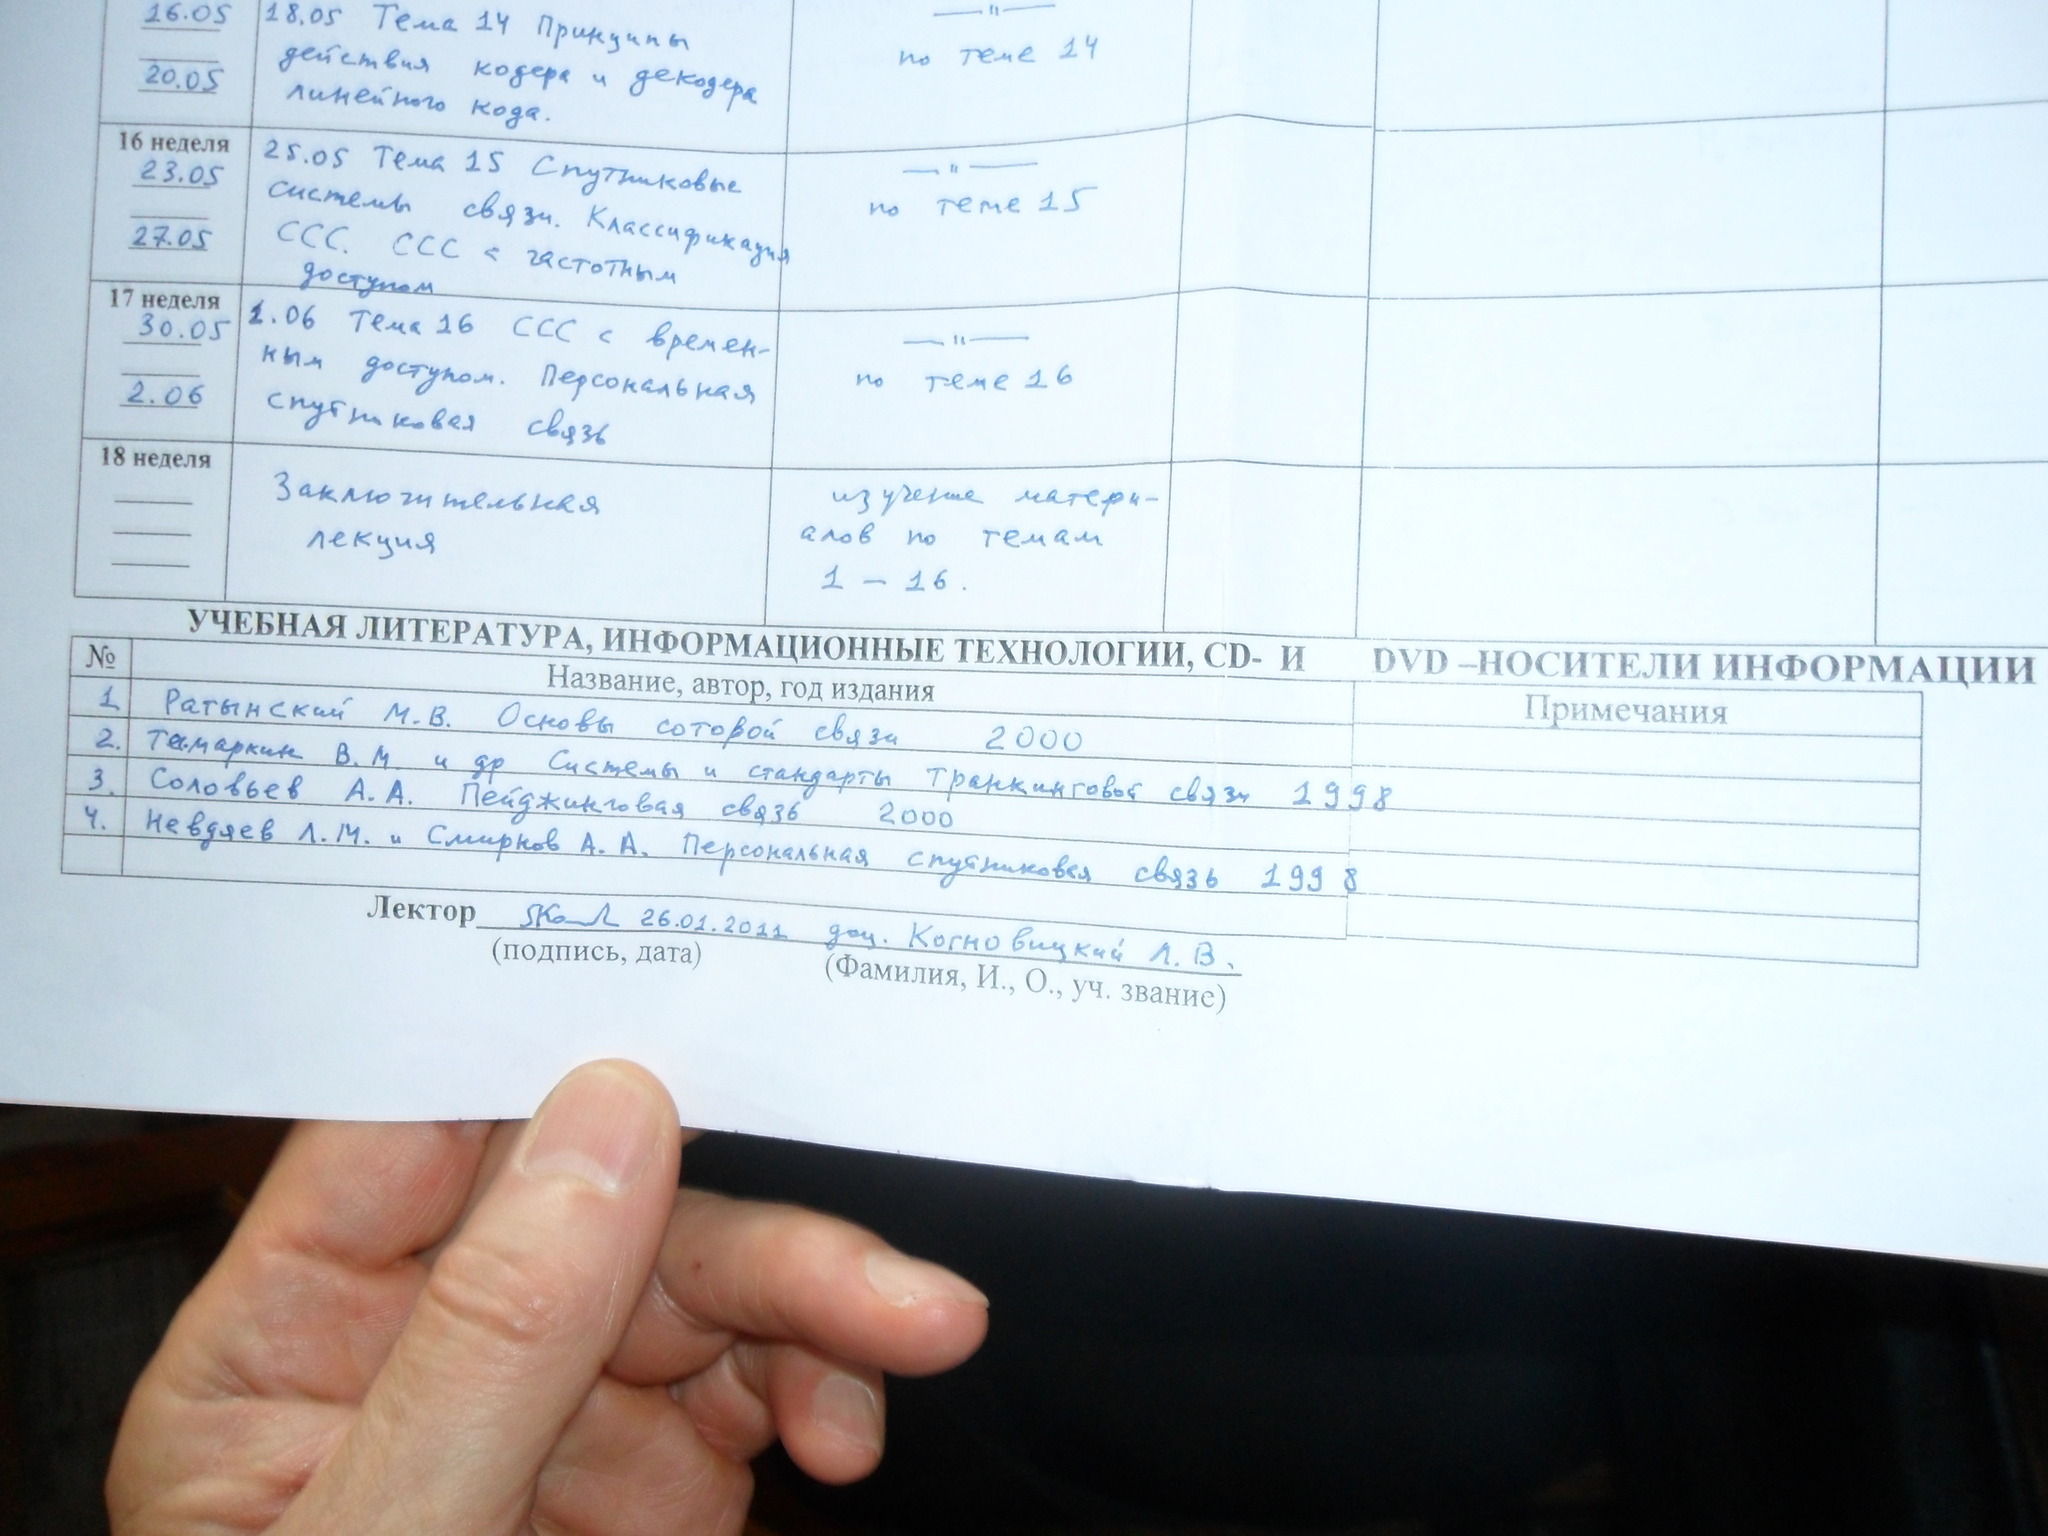 16.05 18.05 Тема 14 Принципы —"—
действия кодера и декодера по теме 14
20.05 линейного кода.
16 неделя 25.05 Тема 15 Спутниковые —"—
23.05 системы связи. Классификация по теме 15
27.05 ССС. ССС с частотным
доступом
17 неделя 1.06 Тема 16 ССС с времен- —"—
30.05 ным доступом. Персональная по теме 16
2.06 спутниковая связь
18 неделя Заключительная изучение матери-
лекция алов по темам
1 – 16.
УЧЕБНАЯ ЛИТЕРАТУРА, ИНФОРМАЦИОННЫЕ ТЕХНОЛОГИИ, CD- И DVD –НОСИТЕЛИ ИНФОРМАЦИИ
№ Название, автор, год издания Примечания
1 Ратынский М.В. Основы сотовой связи 2000
2. Тамаркин В.М. и др Системы и стандарты транкинговой связи 1998
3. Соловьев А.А. Пейджинговая связь 2000
4. Невдяев Л.М. и Смирнов А.А. Персональная спутниковая связь 1998
Лектор 26.01.2011 доц. Когновицкий Л.В.
(подпись, дата) (Фамилия, И., О., уч. звание)